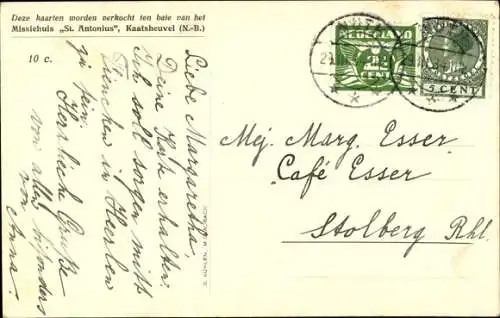 Deze kaarten worden verkocht ten bate van het
Missiehuis „St. Antonius", Kaatsheuvel (N.-B.)
10 c.
Liebe Margaretha,
Deine Karte erhalten.
Ich soll sorgen mitt
in Heerlen
zu sein.
Herrliche Grüße
von allen, besonders
von
Anna.
NEDERLAND
CENT
5 CENT
Mej. Marg. Esser
Café Esser
Stolberg Rhl.